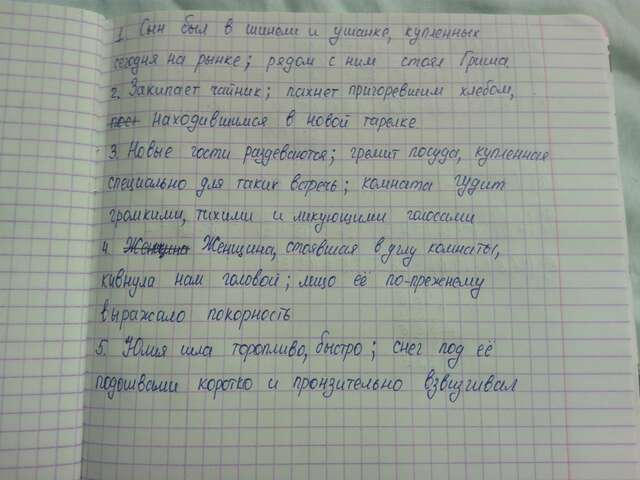 1. Сын был в шинели и ушанке, купленных
сегодня на рынке; рядом с ним стоял Гриша
2. Закипает чайник; пахнет пригоревшим хлебом,
находившимся в новой тарелке
3. Новые гости раздеваются; гремит посуда, купленная
специально для таких встреч; комната гудит
громкими, тихими и ликующими голосами
4. Женщина Женщина, стоявшая в углу комнаты,
кивнула нам головой; лицо её по-прежнему
выражало покорность
5. Юлия шла торопливо, быстро; снег под её
подошвами коротко и пронзительно взвизгивал